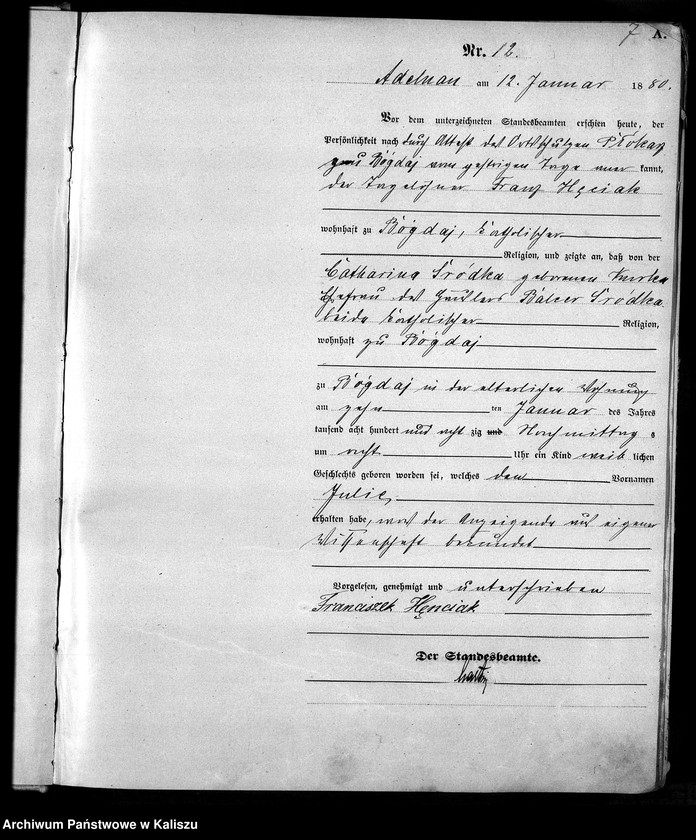 7 A.
Nr. 12.
Adelnau am 12. Januar 1880.
Vor dem unterzeichneten Standesbeamten erschien heute, der
Persönlichkeit nach durch Attest des Ortsschulzen
zu Bógdaj vom gestrigen Tage aner kannt,
der Tagelöhner Franz Hęciak
wohnhaft zu Bógdaj, katholischer
Religion, und zeigte an, daß von der
Catharina Sródka geborenen
Ehefrau des Häuslers Balcer Sródka
beide katholischer Religion,
wohnhaft zu Bógdaj
zu Bógdaj in der elterlichen Wohnung
am zehn ten Januar des Jahres
tausend acht hundert und acht zig und Nachmittag s
um acht Uhr ein Kind weib lichen
Geschlechts geboren worden sei, welches den Vornamen
Julie,
erhalten habe, was der Anzeigende aus eigener
Wissenschaft bekundet
Vorgelesen, genehmigt und unterschrieben
Franciszek Hęnciak
Der Standesbeamte.
Archiwum Państwowe w Kaliszu